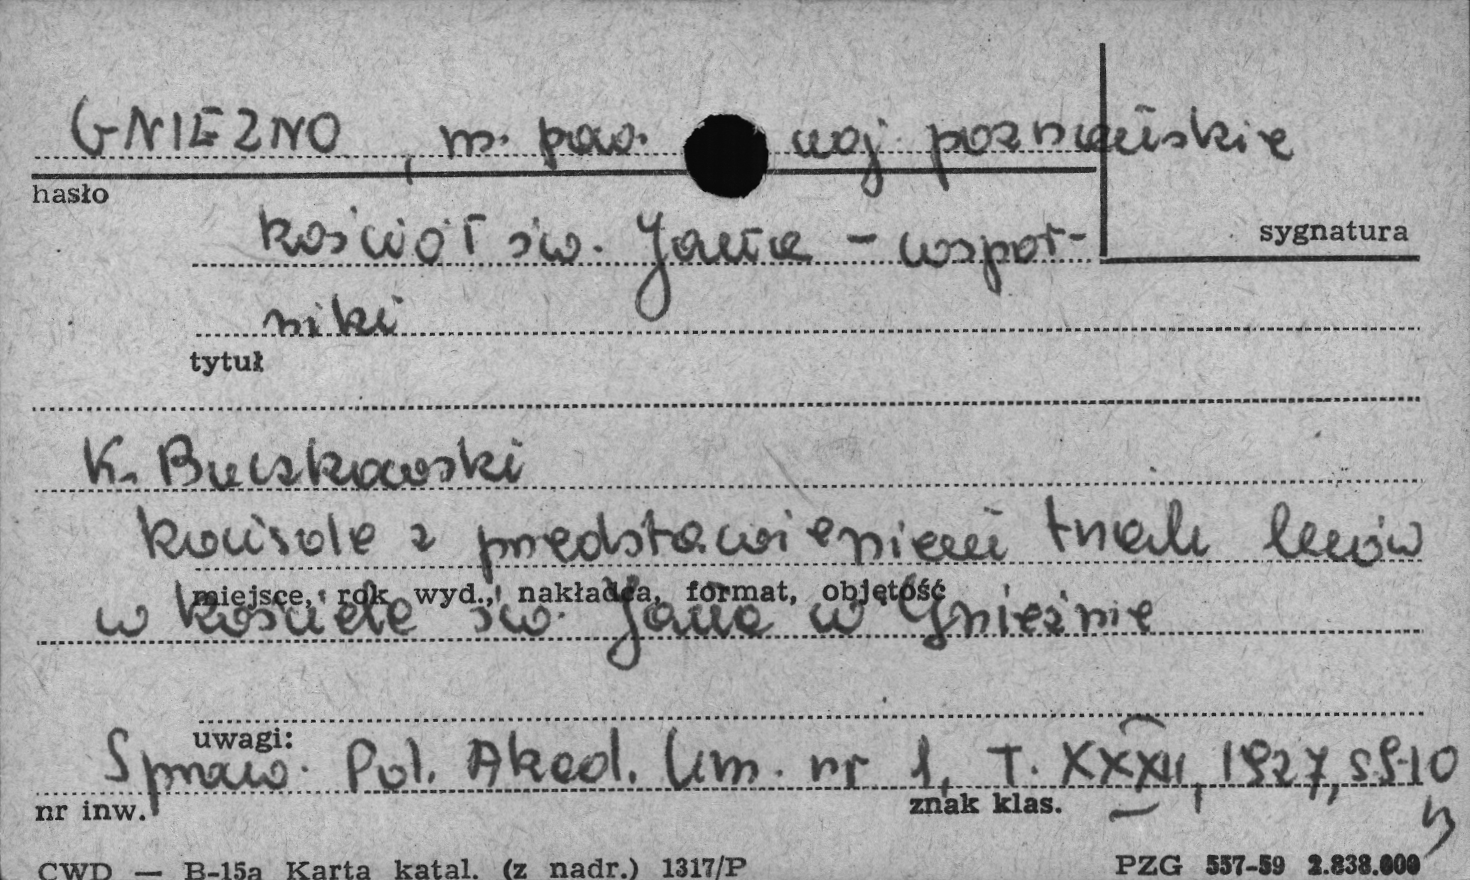 GNIEZNO, m. pow. woj. poznańskie
hasło
sygnatura
kościół św. Jana - wspor-
niki
tytuł
K. Buczkowski
konsole z przedstawieniem trzech lwów
miejsce, rok wyd., nakładca, format, objętość
w kościele św. Jana w Gnieźnie
uwagi:
Spraw. Pol. Akad. Um. nr 1, T. XXXII, 1927, s 9-10
nr inw.
znak klas.
CWD — B-15a Karta katal. (z nadr.) 1317/P
PZG 557-59 2.838.000